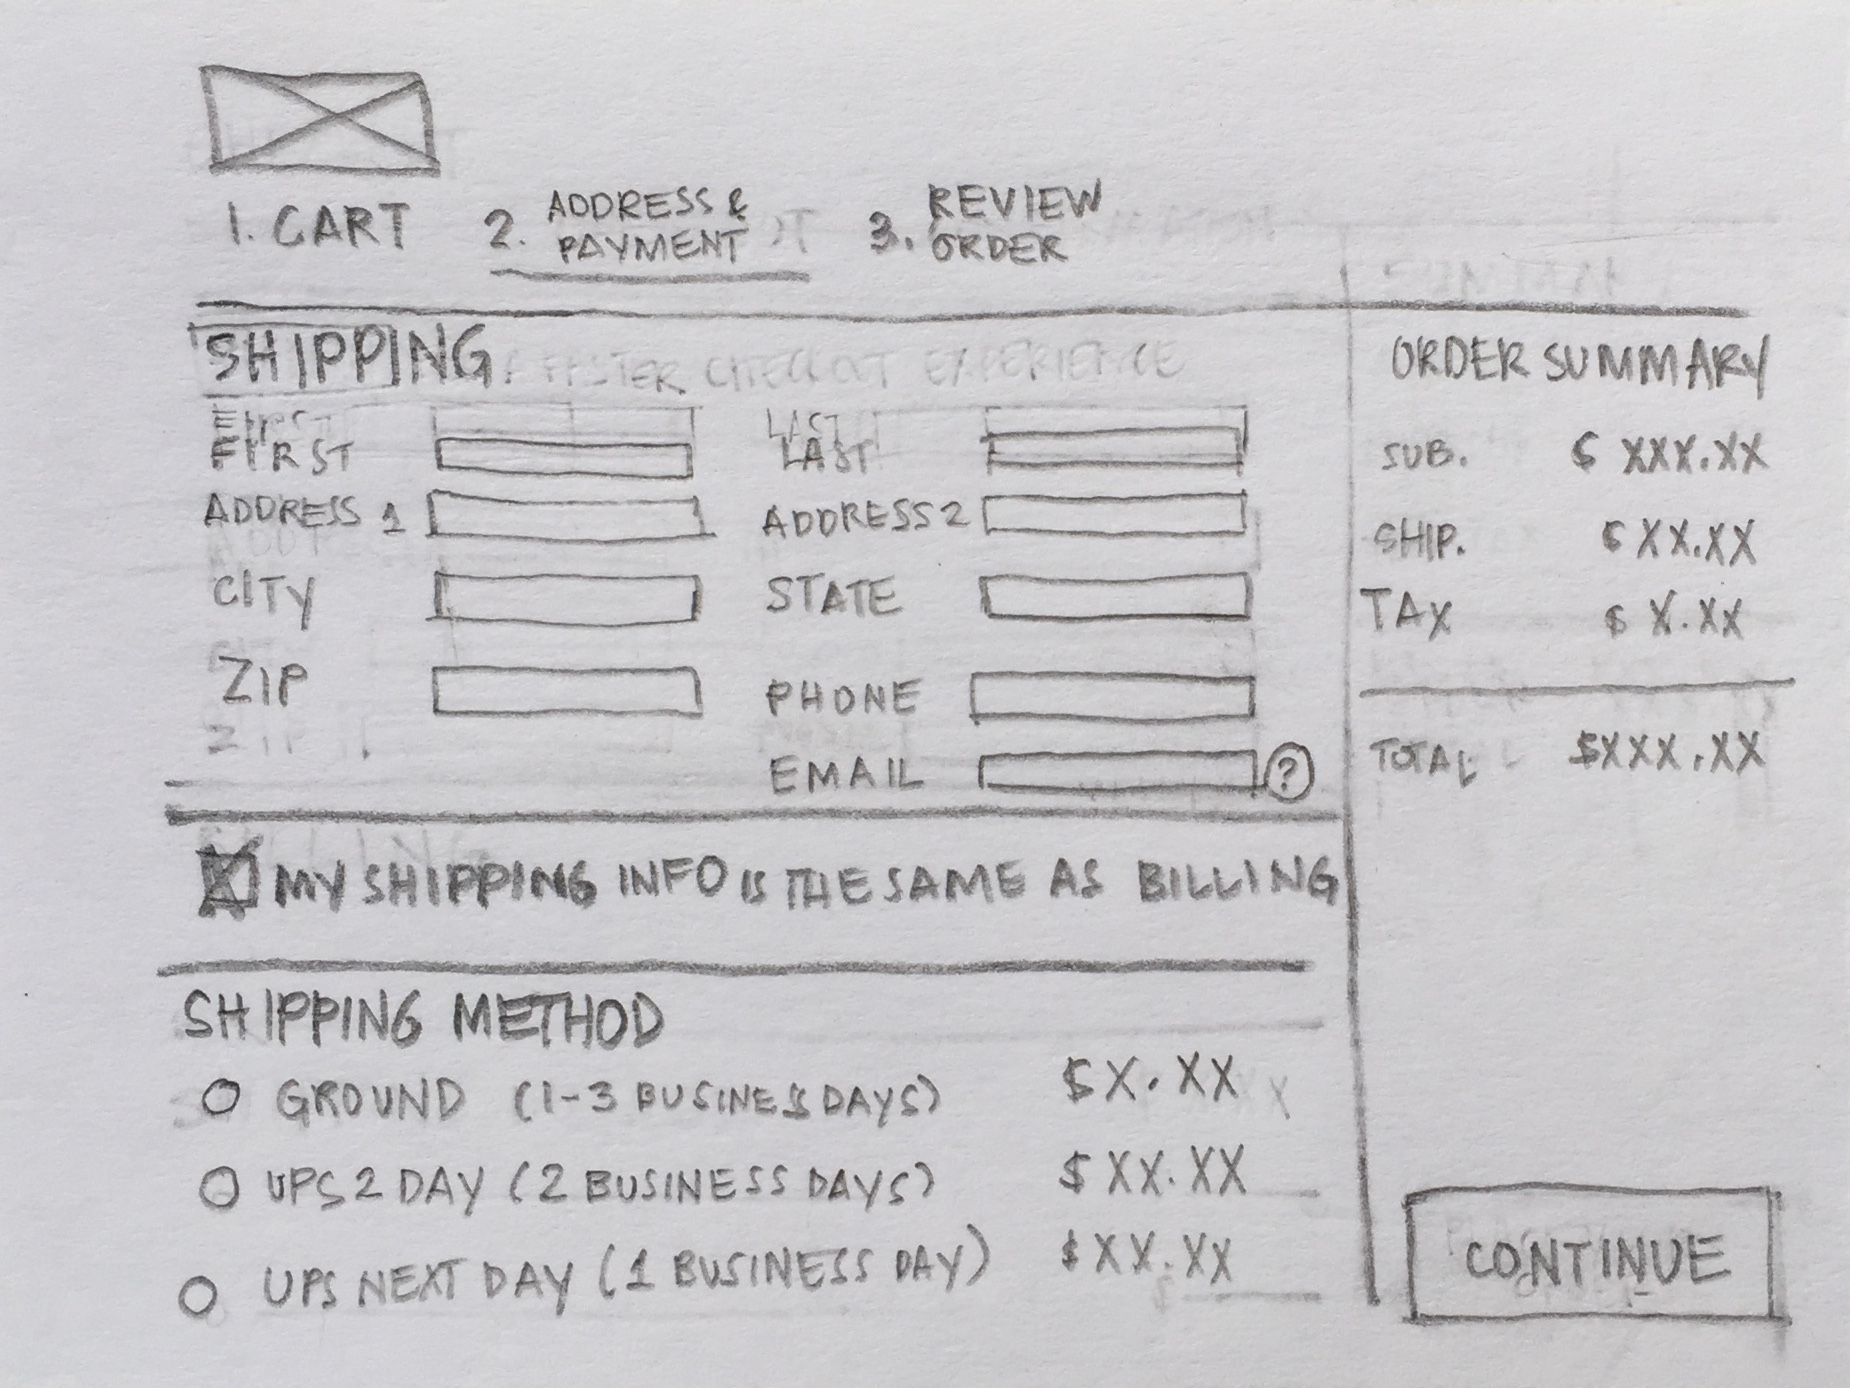 1. CART 2. ADDRESS & PAYMENT 3. REVIEW ORDER
SHIPPING
A FASTER CHECKOUT EXPERIENCE
FIRST
LAST
ADDRESS 1
ADDRESS 2
CITY
STATE
ZIP
PHONE
EMAIL ?
MY SHIPPING INFO IS THE SAME AS BILLING
SHIPPING METHOD
GROUND (1-3 BUSINESS DAYS) $X.XX
UPS 2 DAY (2 BUSINESS DAYS) $XX.XX
UPS NEXT DAY (1 BUSINESS DAY) $XX.XX
ORDER SUMMARY
SUB. $XXX.XX
SHIP. $XX.XX
TAX $X.XX
TOTAL $XXX.XX
CONTINUE